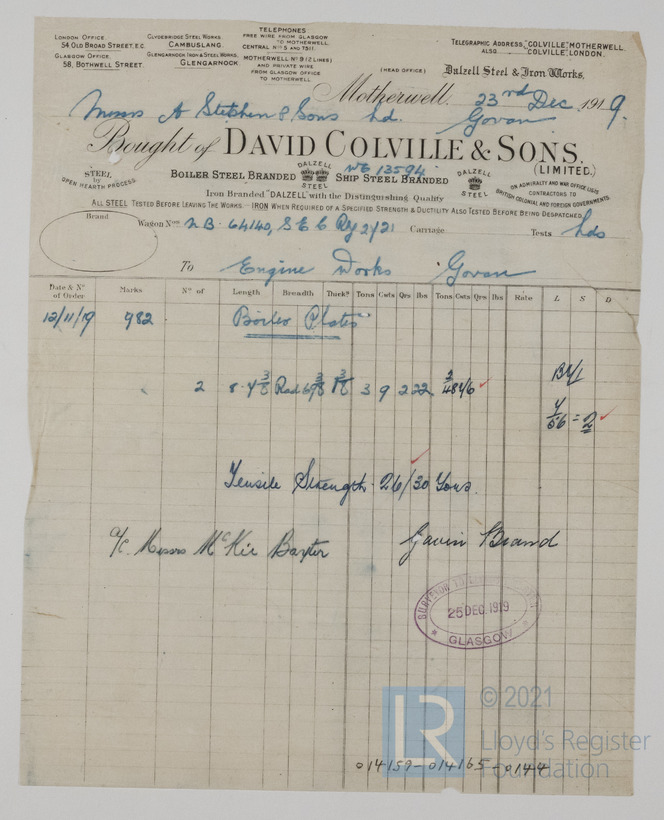 LONDON OFFICE.
54, OLD BROAD STREET, E.C.
GLASGOW OFFICE.
58, BOTHWELL STREET.
CLYDEBRIDGE STEEL WORKS
CAMBUSLANG.
GLENGARNOCK IRON & STEEL WORKS.
GLENGARNOCK.
TELEPHONES
FREE WIRE FROM GLASGOW
TO MOTHERWELL.
CENTRAL Nos 5 AND 7511.
MOTHERWELL No 9 (2 LINES)
AND PRIVATE WIRE
FROM GLASGOW OFFICE
TO MOTHERWELL
TELEGRAPHIC ADDRESS, "COLVILLE", MOTHERWELL.
ALSO "COLVILLE", LONDON.
(HEAD OFFICE) Dalzell Steel & Iron Works,
Motherwell. 23rd Dec 1919.
Messrs A Stephen & Sons Ld. Govan
Bought of DAVID COLVILLE & SONS,
(LIMITED.)
STEEL
by
OPEN HEARTH PROCESS.
BOILER STEEL BRANDED DALZELL STEEL SHIP STEEL BRANDED DALZELL STEEL
13594
ON ADMIRALTY AND WAR OFFICE LISTS
CONTRACTORS TO
BRITISH COLONIAL AND FOREIGN GOVERNMENTS.
Iron Branded "DALZELL" with the Distinguishing Quality
ALL STEEL TESTED BEFORE LEAVING THE WORKS. IRON WHEN REQUIRED OF A SPECIFIED STRENGTH & DUCTILITY ALSO TESTED BEFORE BEING DESPATCHED.
Brand
Wagon Nos N.B. 64140, Carriage. Tests Lds
To Engine Works Govan
Date & No of Order Marks No of Length Breadth Thickn Tons Cwts Qrs lbs Tons Cwts Qrs lbs Rate L S D
12/11/19 982 Boiler Plates
2 8. 4 3/8 Rad 69 3/8 3 9 2 22
Tensile Strength 26/30 Tons.
a/c. Messrs McKie Baxter Gavin Brand
25 DEC. 1919
GLASGOW
© 2021
LR Lloyd's Register
Foundation
014159-014165-0144